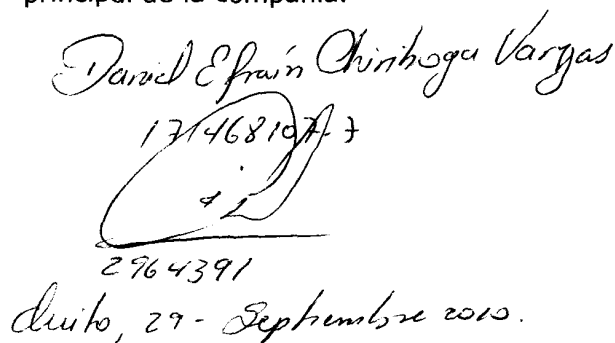 principal de la compañía.
Daniel Efraín Chiriboga Vargas
2964391
Quito, 29 - Septiembre 2010.